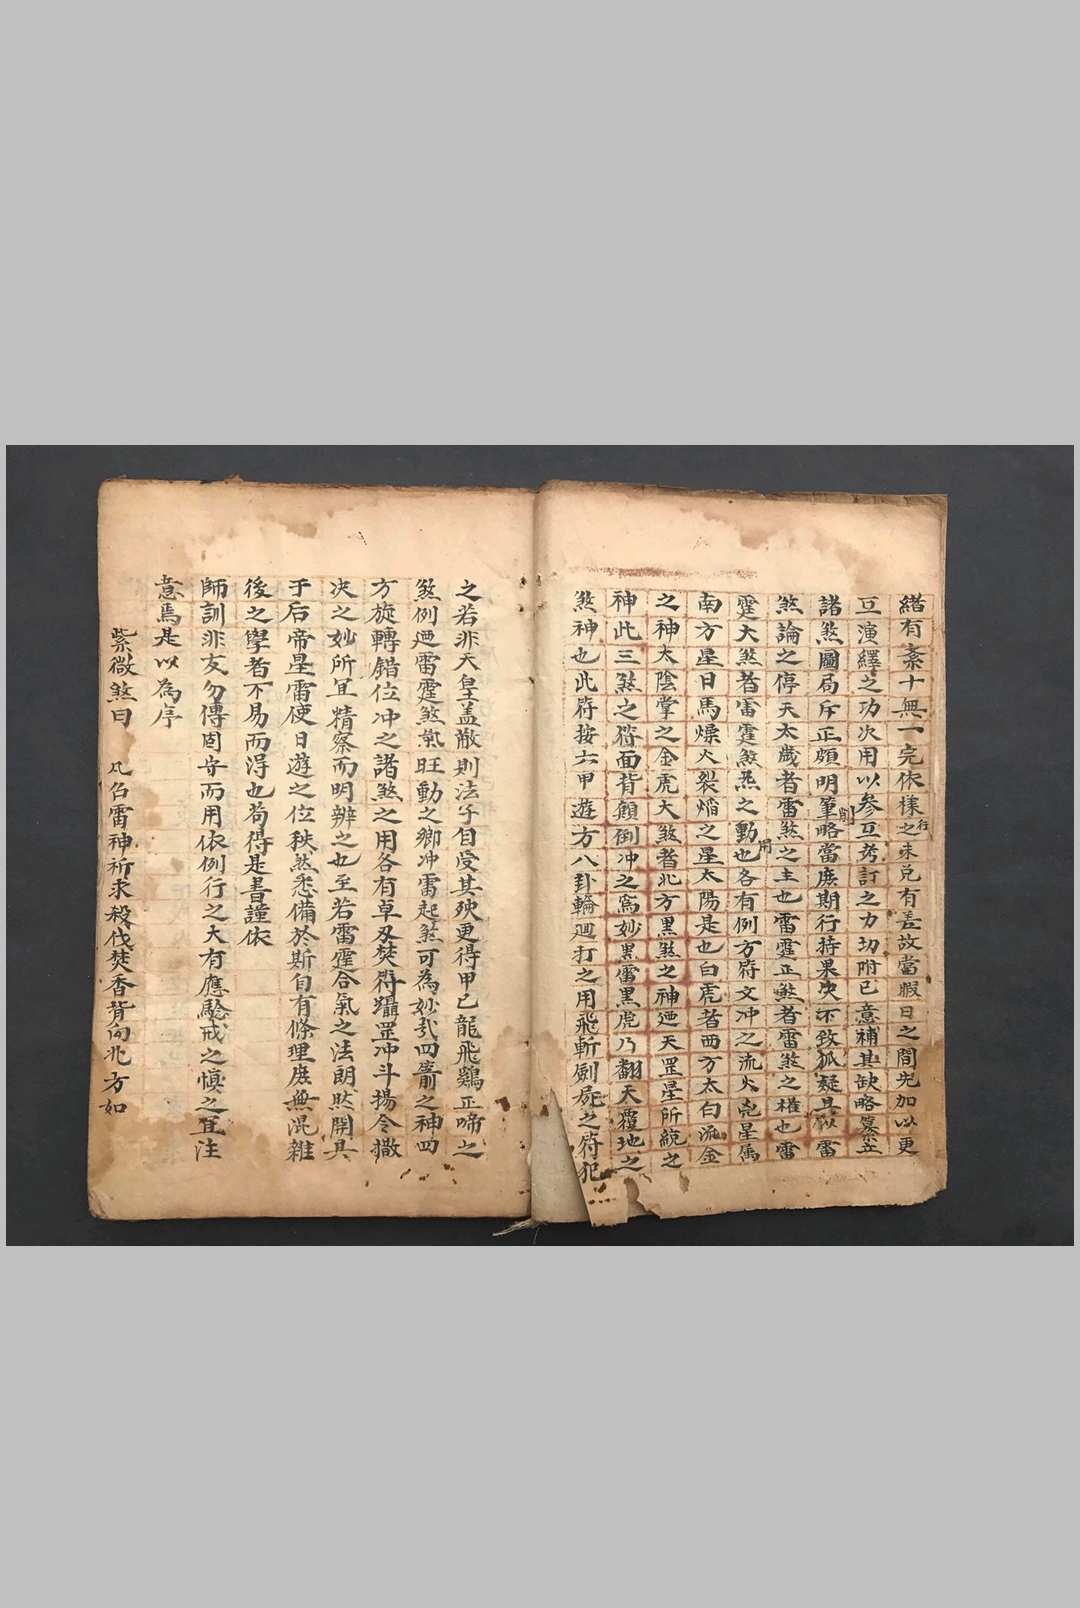 緒有紊十無一完依樣之行未免有差故當暇日之間先加以更
互演繹之功次用以參互考訂之力切附已意補其缺略纂立
諸煞圖局斥正頗明筆略削當庶期行持果决不致狐疑且似雷
煞論之停天太歲者雷煞之主也雷霆正煞者雷煞之權也雷
霆大煞者雷霆煞炁之動也用各有例方符文冲之流火兇星傷
南方星日馬燥火裂焰之星太陽是也白虎者西方太白流金
之神太陰掌之金虎大煞者北方黑煞之神廼天罡星所統之
神此三煞之符面背顛倒冲之窩妙黑雷黑虎乃翻天覆地之
煞神也此符按六甲遊方八卦輪迴打之用飛斬劍屍之符犯
之若非天皇蓋敝則法子自受其殃更得甲己龍飛鷄正啼之
煞例廼雷霆煞氣旺動之鄉冲雷起煞可為妙哉四箭之神四
方旋轉錯位冲之諸煞之用各有卓刄焚符躡罡冲斗揚令撒
决之妙所宜精察而明辨之也至若雷霆合氣之法朗然開具
于后帝星雷使日遊之位秩然悉備於斯自有條理庶無混雜
後之學者不易而淂也苟得是書謹依
師訓非友勿傳固守而用依例行之大有應驗戒之慎之宜注
意焉是以為序
紫微煞曰 凡召雷神祈求殺伐焚香背向北方如